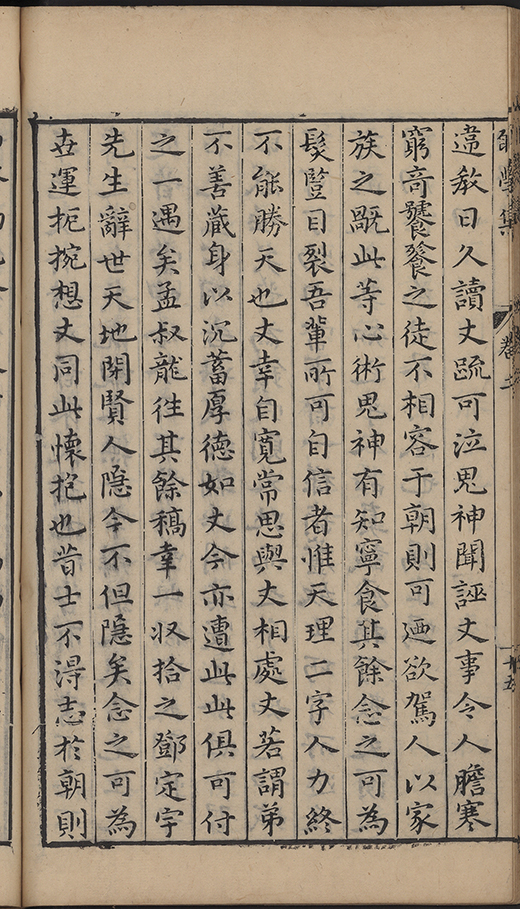 違教日久讀丈疏可泣鬼神聞誣丈事令人膽寒
窮奇饕餮之徒不相容于朝則可廼欲駕人以家
族之嘅此等心術鬼神有知寧食其餘念之可為
髮豎目裂吾輩所可自信者惟天理二字人力終
不能勝天也丈幸自寬常思與丈相處丈若謂弟
不善藏身以沉蓄厚德如丈今亦遭此此俱可付
之一遇矣孟叔龍徃其餘稿幸一收拾之鄧定宇
先生辭世天地閉賢人隱今不但隱矣念之可為
世運扼捥想丈同此懷抱也昔士不淂志於朝則
卷二
十五